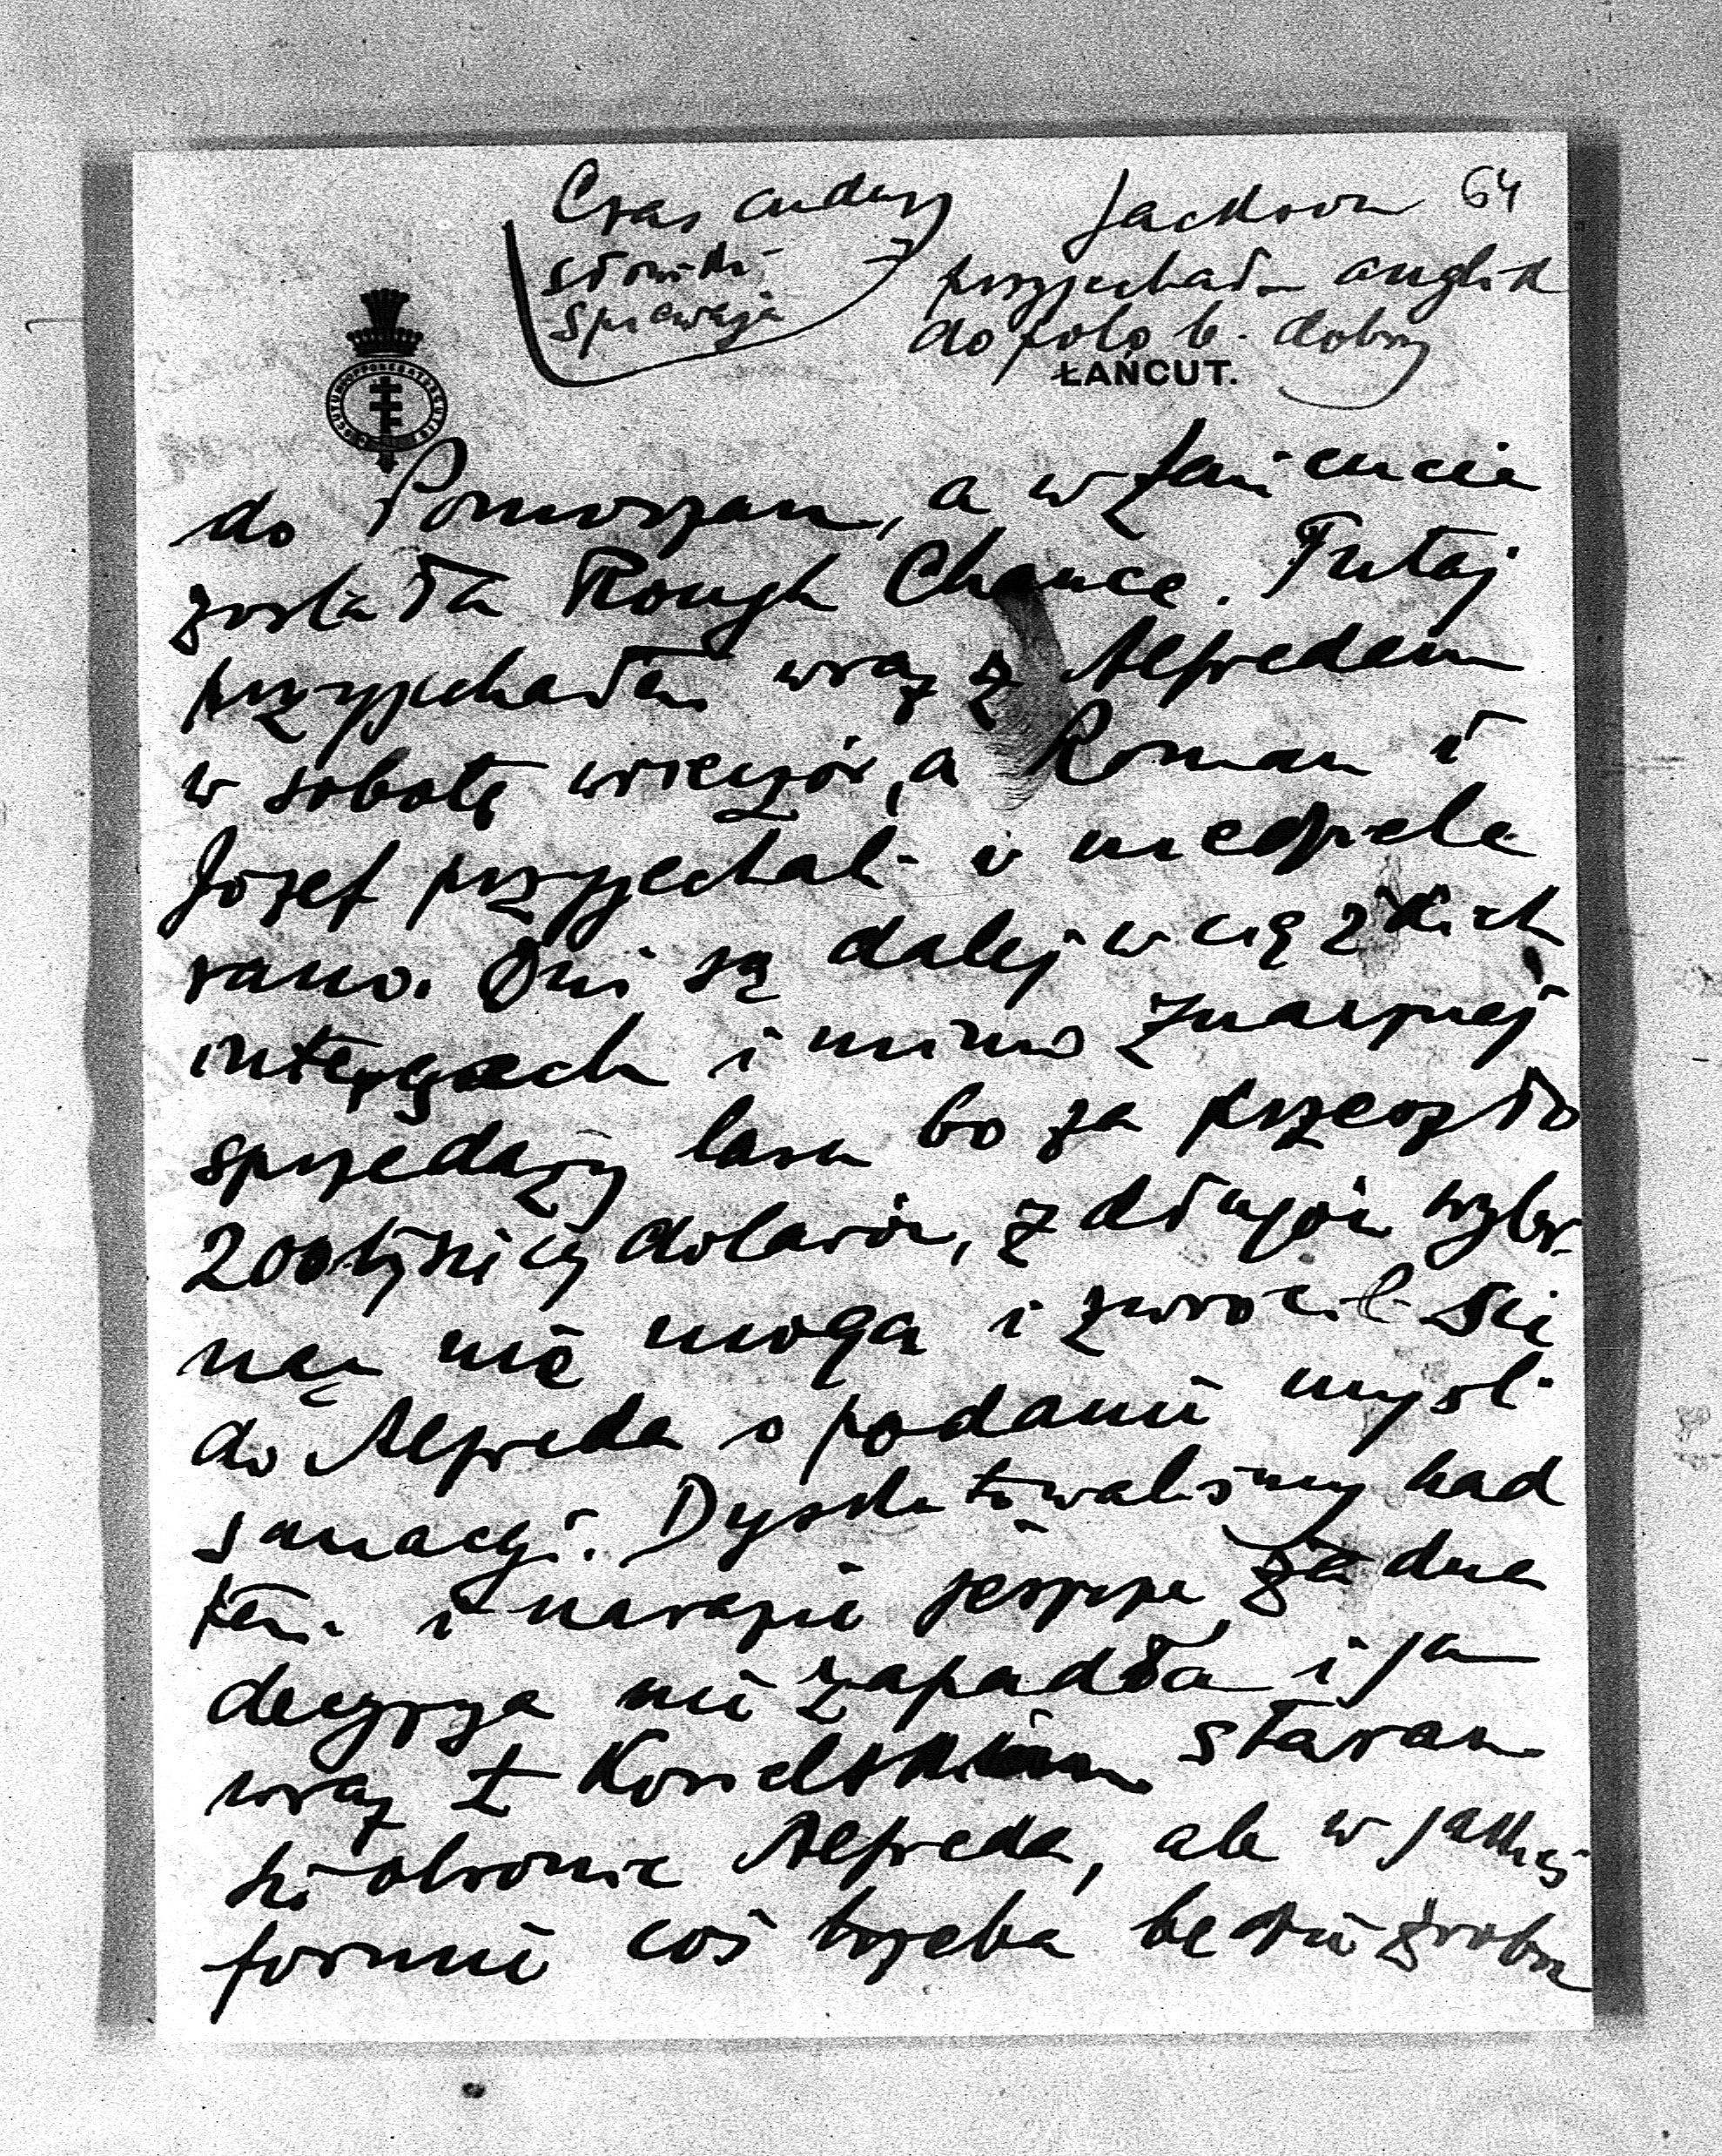 Czas cudny
słowiki
śpiewają
Jackson 64
przyjechał anglik
do polo b. dobry
ŁAŃCUT.
do Pomorzan, a w Łańcucie
została Rough Chance. Tutaj
przyjechałam wraz z Alfredem
w sobotę wieczór, a Roman i
Józef przyjechali w niedziele
rano. Oni są dalej w ciężkich
interesach i mimo znacznej
sprzedaży lasu bo za przeszło
200 tysięcy dolarów, z długów wybr-
nąć nie mogą i zwrócili się
do Alfreda o podanie myśli
sanacyi. Dyskutowaliśmy nad
tem i narazie jeszcze żadna
decyzya nie zapadła i ja
wraz z Kosielskim staram
się obronić Alfreda, ale w jakiejś
formie coś trzeba będzie zrobić